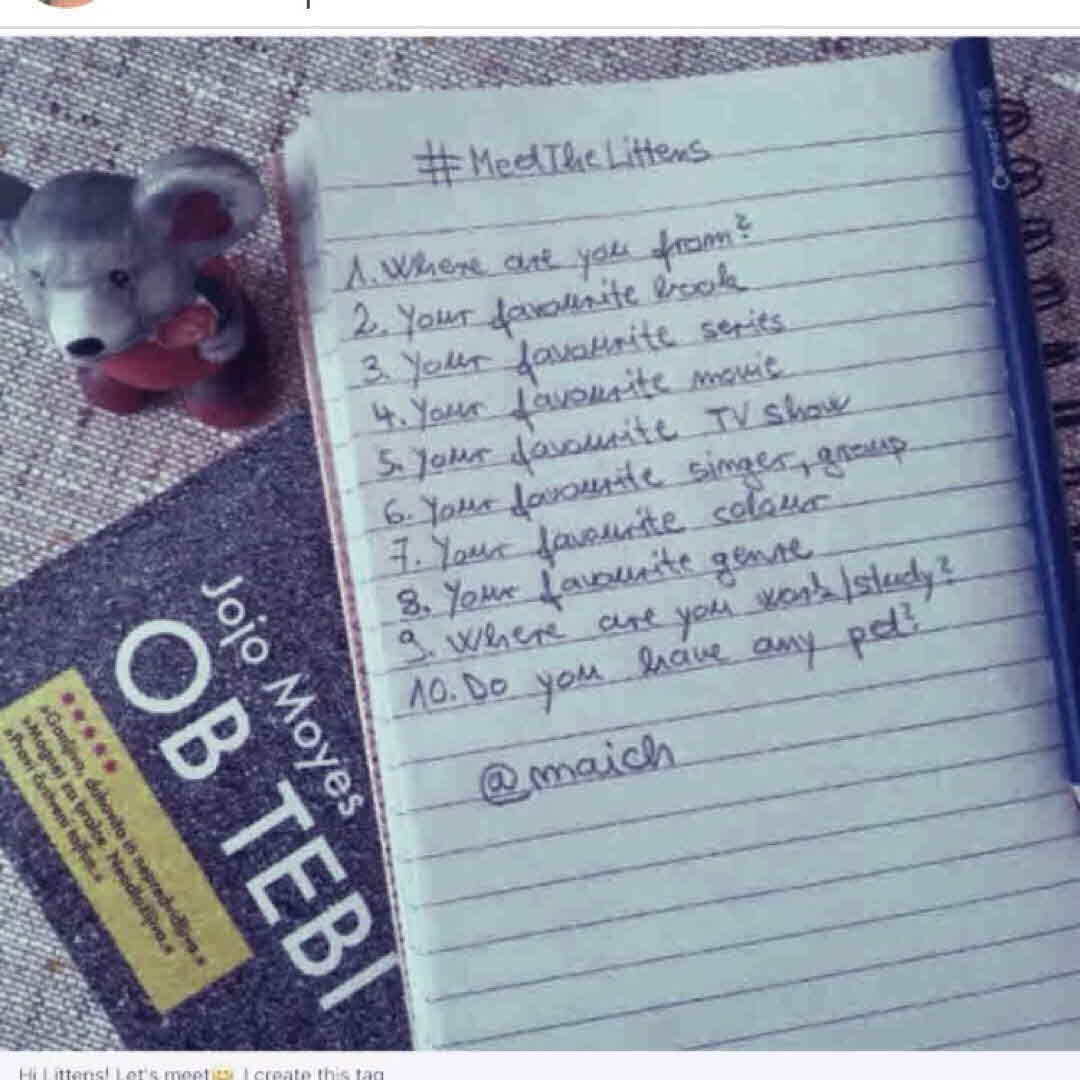 #MeetTheLittens
1. Where are you from?
2. Your favourite book
3. Your favourite series
4. Your favourite movie
5. Your favourite TV show
6. Your favourite singer, group
7. Your favourite colour
8. Your favourite genre
9. Where are you work/study?
10. Do you have any pet?
@maich
Jojo Moyes
OB TEBI
»Ganljivo, duhovito in
Hi Littens! Let's meet😀 I create this tag